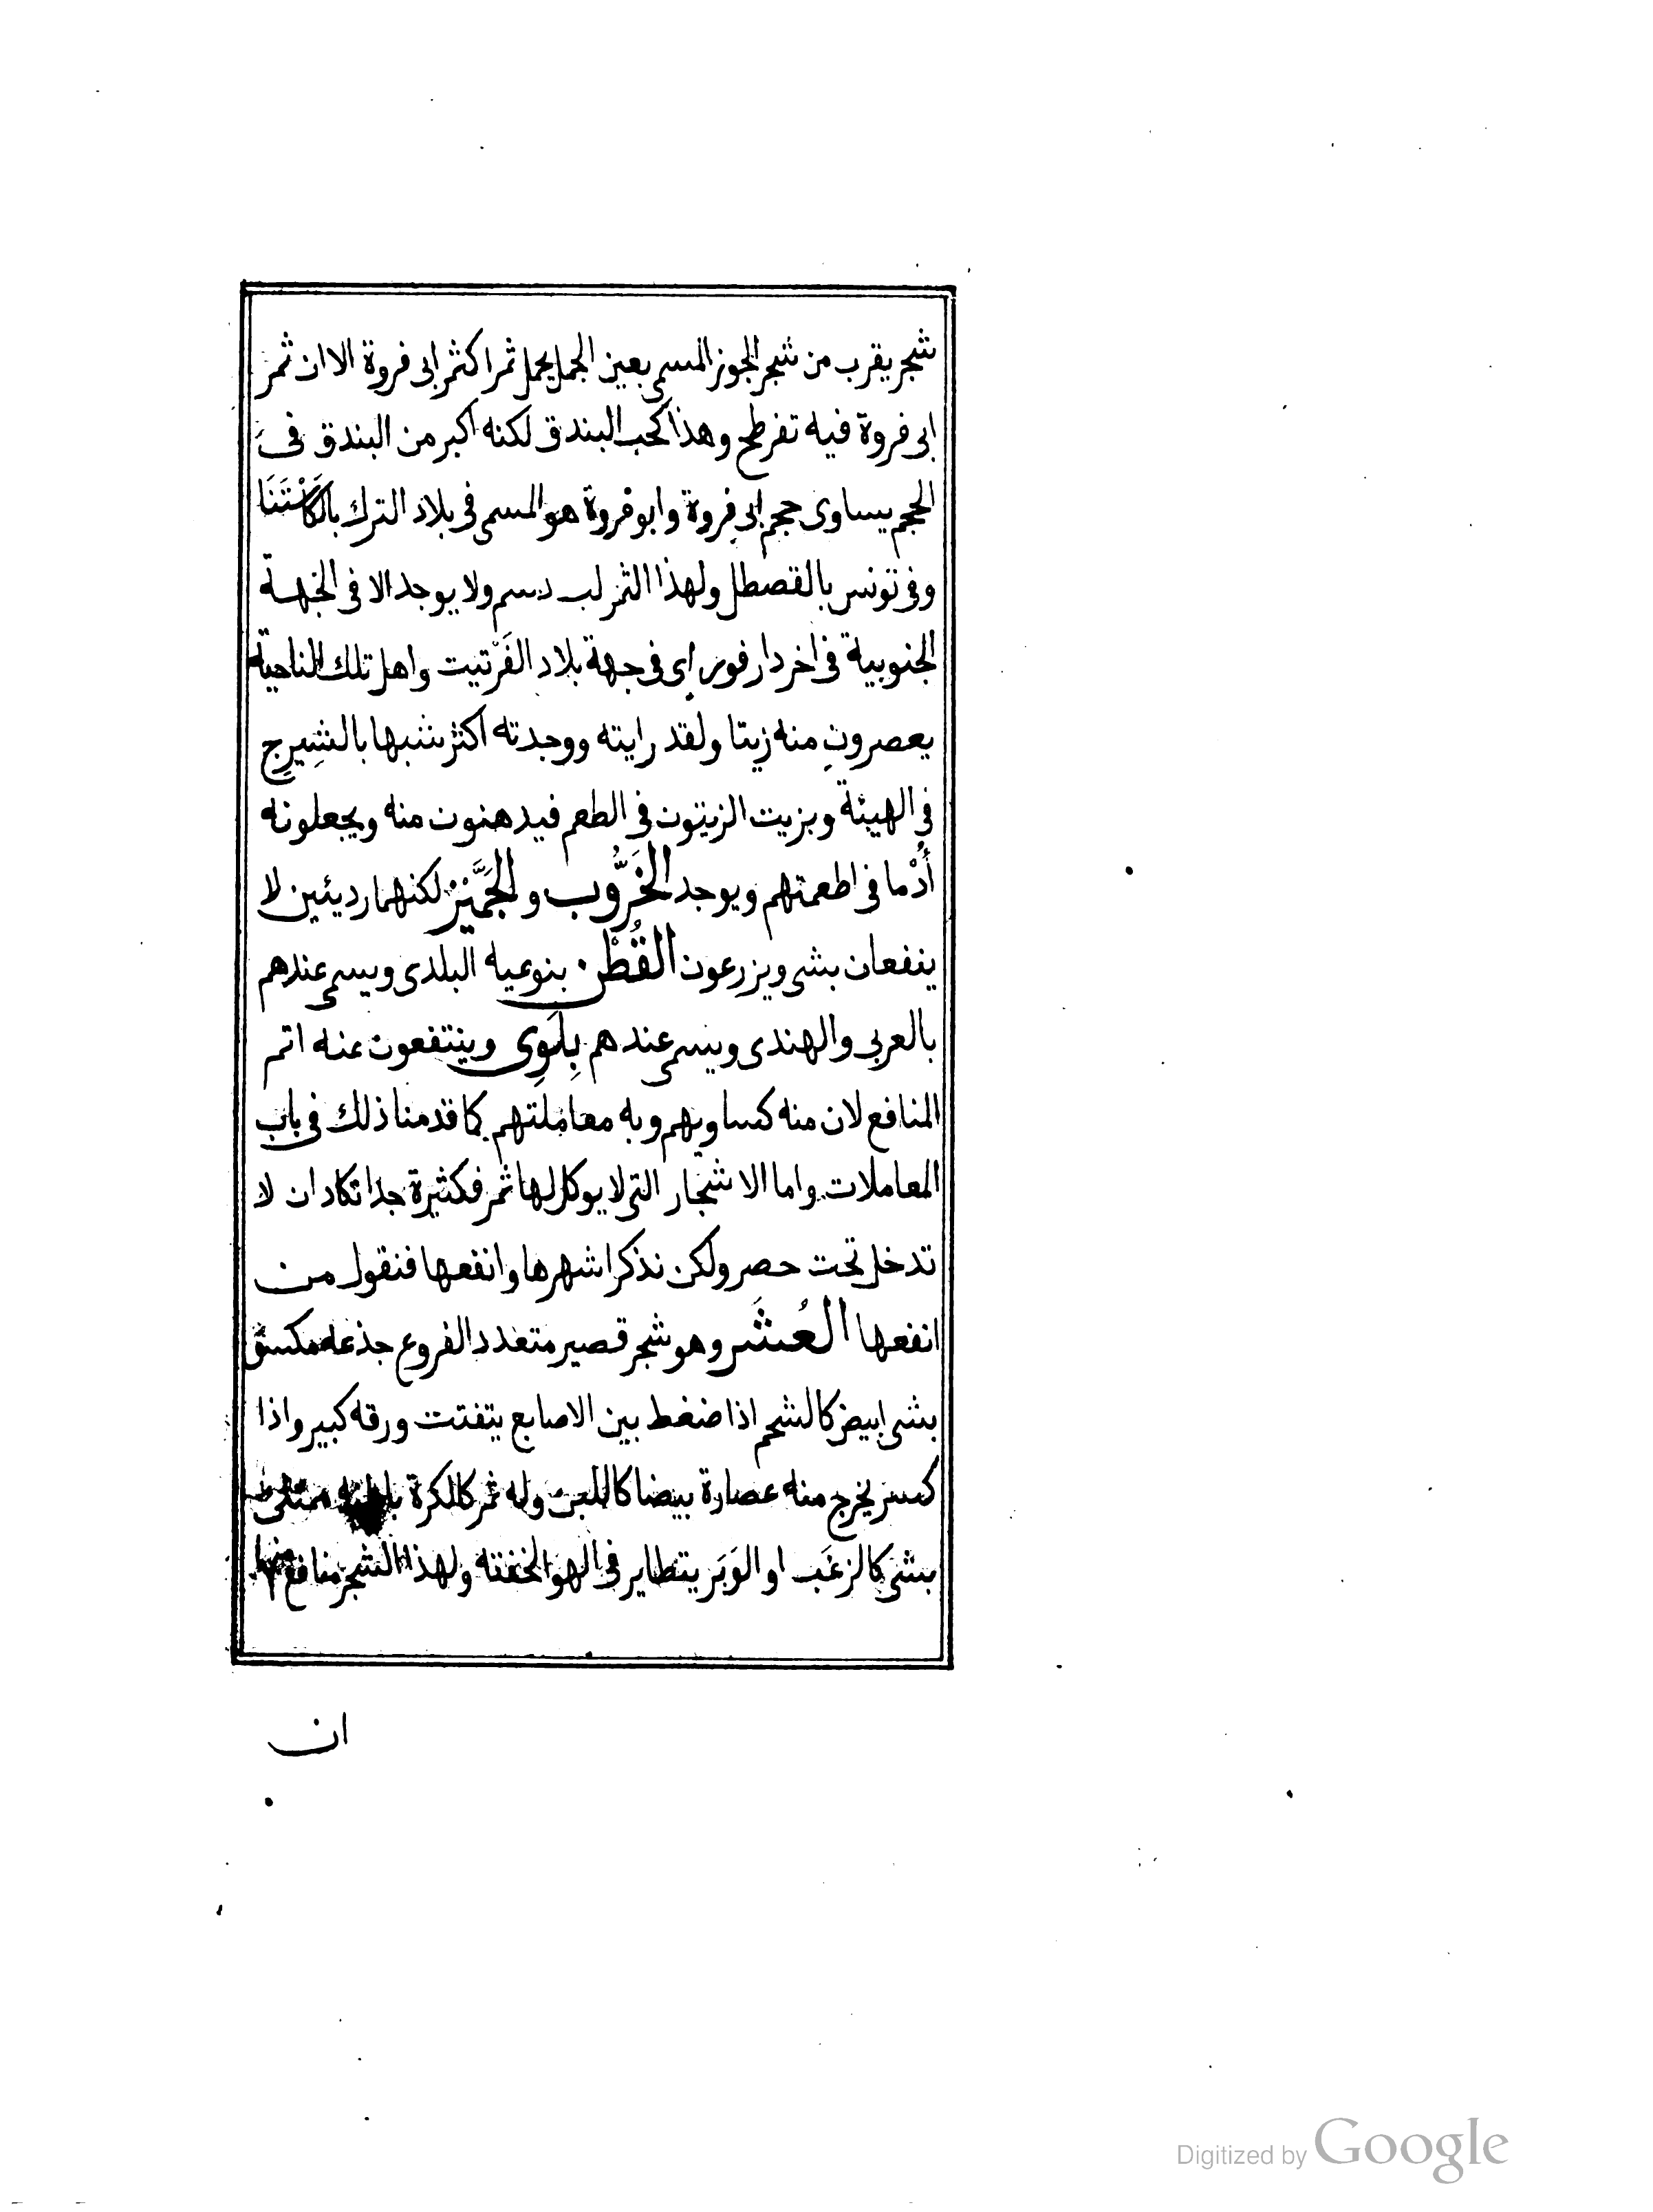 شجر يقرب من شجر الجوز المسمى بعين الجمل يحمل ثمرا كثمر ابى فروة الا ان ثمر
ابى فروة فيه تفرطح وهذا كحب البندق لكنه اكبر من البندق فى
الحجم يساوى حجم ابى فروة وابو فروة هو المسمى فى بلاد الترك بالكَسْتَنَا
وفى تونس بالقصطل ولهذا الثمر لب دسم ولا يوجد الا فى الجهة
الجنوبية فى اخر دار فور اى فى جهة بلاد الفَرْتيت واهل تلك الناحية
يعصرون منه زيتا ولقد رايته ووجدته اكثر شبها بالشِيرِج
فى الهيئة وبزيت الزيتون فى الطعم فيدهنون منه ويجعلونه
أُدْما فى اطعمتهم ويوجد الخَرُّوب والجَمَّيز لكنهما رديئين لا
ينفعان بشى ويزرعون القُطْن بنوعيه البلدى ويسمى عندهم
بالعربى والهندى ويسمى عندهم بِلَوِى وينتفعون منه اتم
المنافع لان منه كساويهم وبه معاملتهم كما قدمنا ذلك فى باب
المعاملات واما الاشجار التى لا يوكل لها ثمر فكثيرة جدا تكاد ان لا
تدخل تحت حصر ولكن نذكر اشهرها وانفعها فنقول من
انفعها العُشَر وهو شجر قصير متعدد الفروع جذعه مكسو
بشى ابيض كالشحم اذا ضغط بين الاصابع يتفتت ورقه كبير واذا
كسر يخرج منه عصارة بيضا كاللبن وله ثمر كالكرة باطنه ممتلى
بشى كالزغَب او الوَبَر يتطاير فى الهوا لخفته ولهذا الشجر منافع منها
ان
Digitized by Google